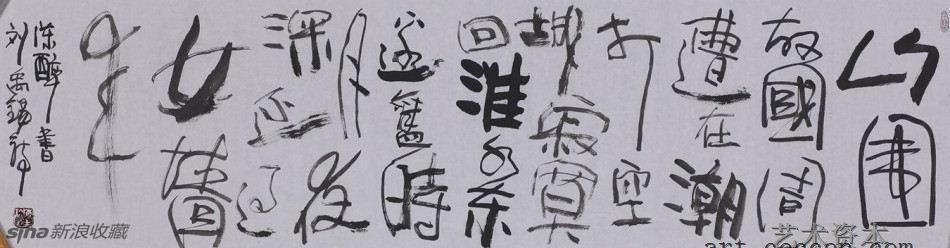 山围
故國周
遭在潮
打空
城寂寞
回淮水东
邊舊時
月夜
深还过
女墙
来
陈醉書
刘禹锡诗
sina新浪收藏
艺术资本